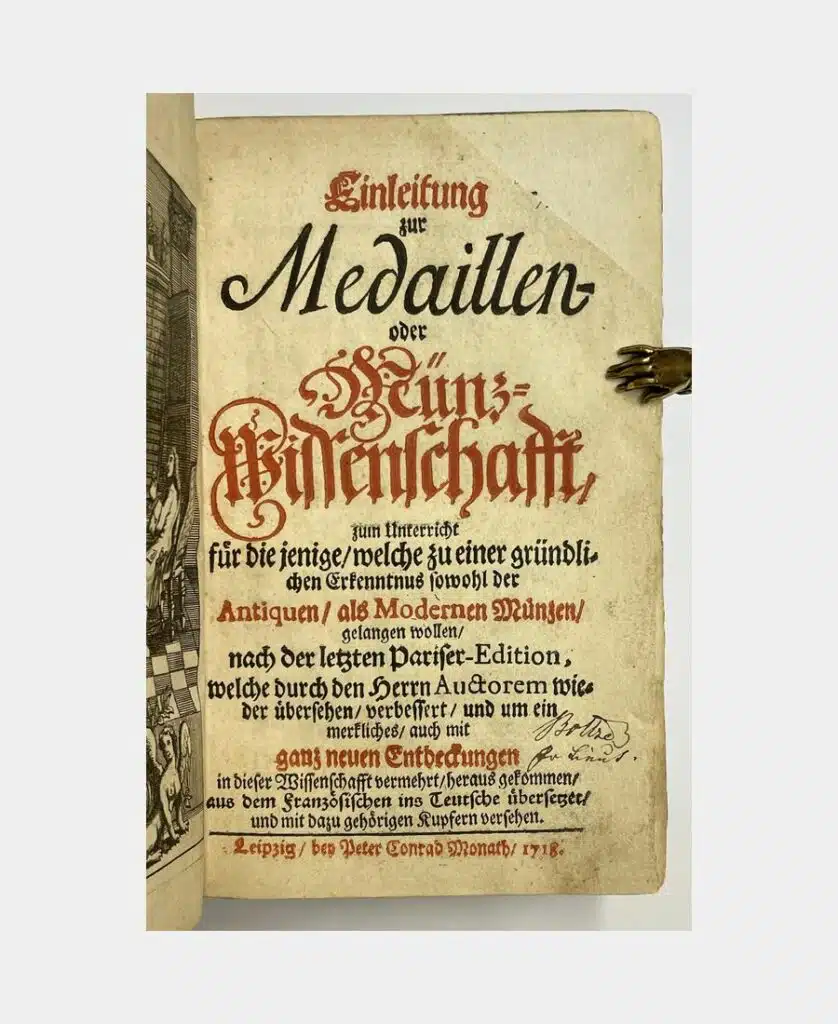 Einleitung
zur
Medaillen-
oder
Münz-
Wissenschafft,
zum Unterricht
für die jenige/welche zu einer gründli-
chen Erkenntnus sowohl der
Antiquen/ als Modernen Münzen/
gelangen wollen/
nach der letzten Pariser-Edition,
welche durch den Herrn Auctorem wie-
der übersehen/ verbessert/ und um ein
merkliches/ auch mit
ganz neuen Entdeckungen
in dieser Wissenschafft vermehrt/heraus gekommen/
aus dem Französischen ins Teutsche übersetzet/
und mit dazu gehörigen Kupfern versehen.
Leipzig/ bey Peter Conrad Monath/ 1718.